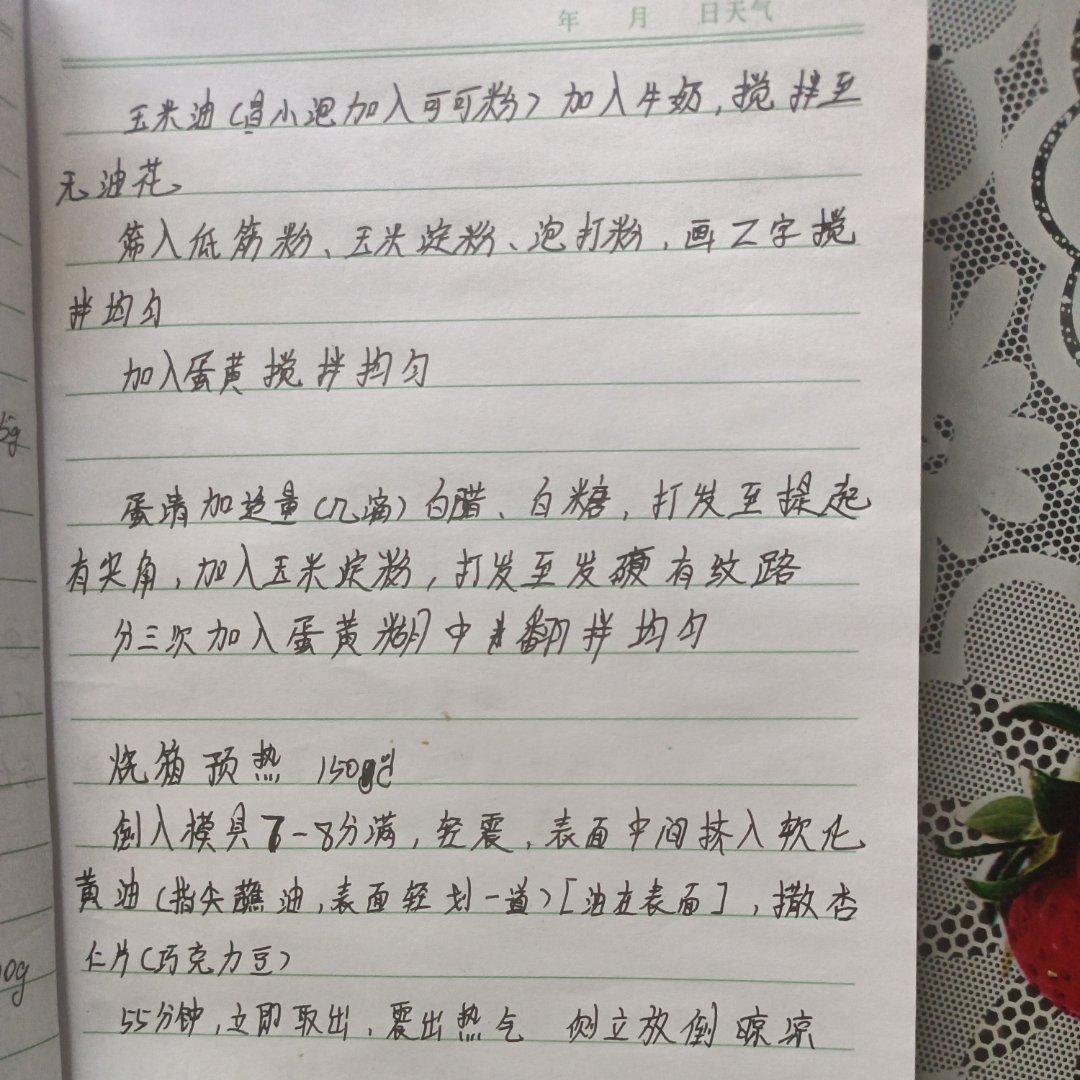 年 月 日 天气
玉米油(冒小泡加入可可粉)加入牛奶,搅拌至
无油花、
筛入低筋粉、玉米淀粉、泡打粉,画Z字搅
拌均匀
加入蛋黄搅拌均匀
5g
蛋清加适量(几滴)白醋、白糖,打发至提起
有尖角,加入玉米淀粉,打发至发硬有纹路
分三次加入蛋黄糊中翻拌均匀
烧箱预热 150℃
倒入模具7-8分满,轻震,表面中间挤入软化
黄油(指尖蘸油,表面轻划一道)[油在表面],撒杏
仁片(巧克力豆)
0g
55分钟,立即取出,震出热气 侧立放倒晾凉